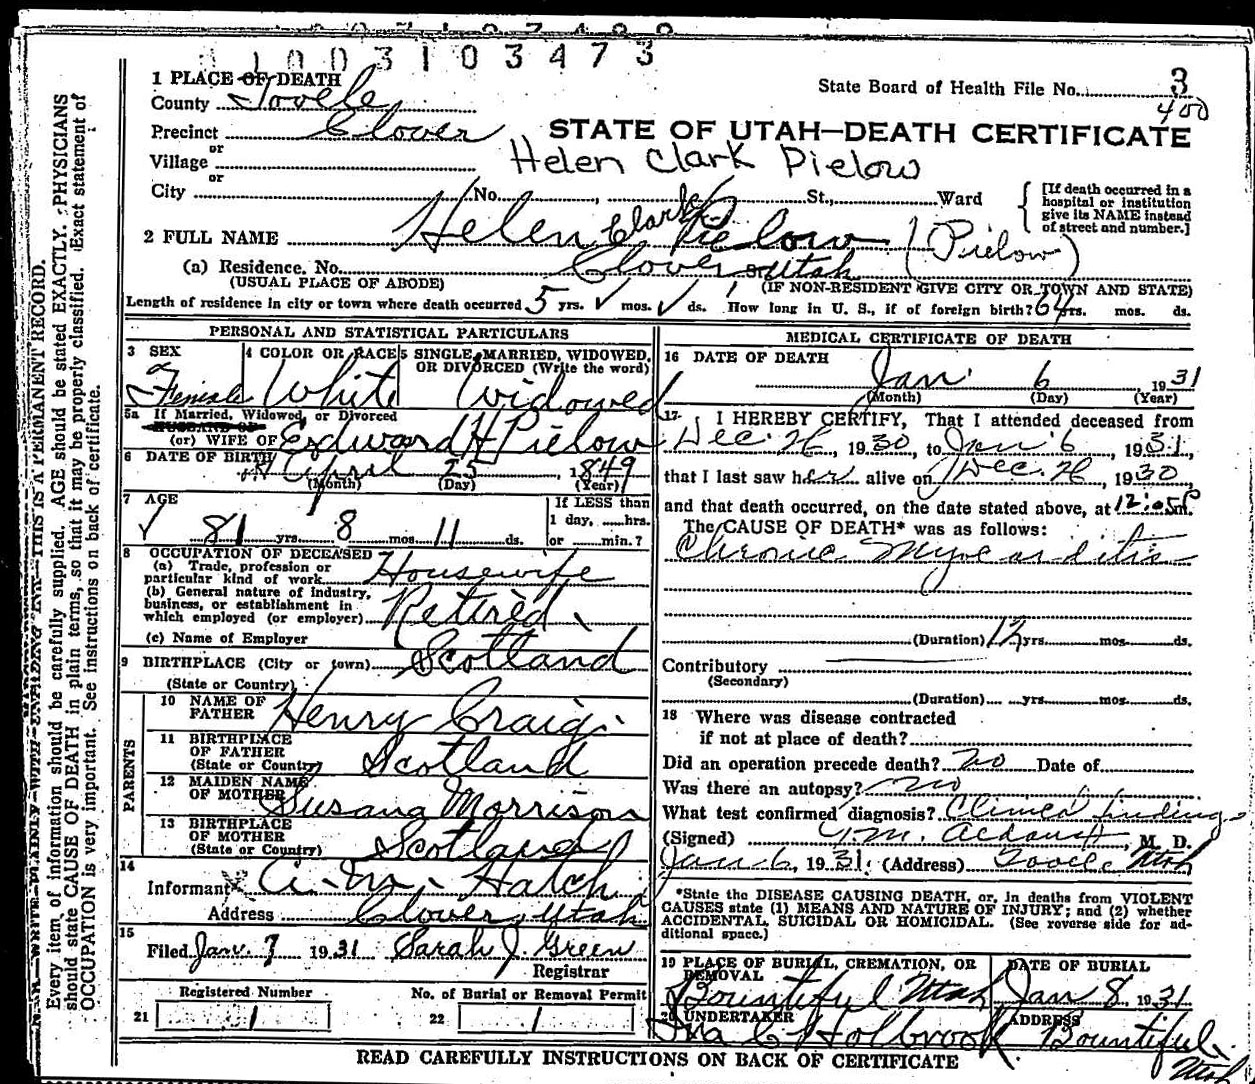 1003103473
1 PLACE OF DEATH
County Tooele
State Board of Health File No. 3
400
Precinct Clover
or
Village
STATE OF UTAH—DEATH CERTIFICATE
Helen Clark Pielow
or
City No. St., Ward
[If death occurred in a hospital or institution give its NAME instead of street and number.]
2 FULL NAME Helen Clark Pielow (Pielow)
(a) Residence. No. Clover St. Utah
(USUAL PLACE OF ABODE) (IF NON-RESIDENT GIVE CITY OR TOWN AND STATE)
Length of residence in city or town where death occurred 5 yrs. ✓ mos. ✓ ds. How long in U. S., if of foreign birth? 64 yrs. mos. ds.
PERSONAL AND STATISTICAL PARTICULARS
3 SEX Female
4 COLOR OR RACE White
5 SINGLE, MARRIED, WIDOWED, OR DIVORCED (Write the word) Widowed
5a If Married, Widowed, or Divorced
HUSBAND OF
(or) WIFE OF Edward H Pielow
6 DATE OF BIRTH April 25, 1849
(Month) (Day) (Year)
7 AGE
✓ 81 yrs. 8 mos. 11 ds.
If LESS than
1 day, hrs.
or min.?
8 OCCUPATION OF DECEASED
(a) Trade, profession or
particular kind of work Housewife
(b) General nature of industry,
business, or establishment in
which employed (or employer) Retired
(c) Name of Employer
9 BIRTHPLACE (City or town) Scotland
(State or Country)
PARENTS
10 NAME OF FATHER Henry Craig
11 BIRTHPLACE OF FATHER (State or Country) Scotland
12 MAIDEN NAME OF MOTHER Susana Morrison
13 BIRTHPLACE OF MOTHER (State or Country) Scotland
14
Informant A. M. Hatch
Address Clover, Utah
15
Filed Jan. 7 1931 Sarah J. Green
Registrar
Registered Number
21 1
No. of Burial or Removal Permit
22 1
MEDICAL CERTIFICATE OF DEATH
16 DATE OF DEATH
Jan. 6, 1931
(Month) (Day) (Year)
17 I HEREBY CERTIFY, That I attended deceased from
Dec. 26, 1930, to Jan 6, 1931,
that I last saw her alive on Dec. 26, 1930
and that death occurred, on the date stated above, at 12:05 P m.
The CAUSE OF DEATH* was as follows:
Chronic Myocarditis
(Duration) 12 yrs. mos. ds.
Contributory
(Secondary)
(Duration) yrs. mos. ds.
18 Where was disease contracted
if not at place of death?
Did an operation precede death? no Date of
Was there an autopsy? no
What test confirmed diagnosis? Clinical findings
(Signed) M. D.
Jan 6, 1931. (Address) Tooele Utah
*State the DISEASE CAUSING DEATH, or, in deaths from VIOLENT
CAUSES state (1) MEANS AND NATURE OF INJURY; and (2) whether
ACCIDENTAL, SUICIDAL OR HOMICIDAL. (See reverse side for ad-
ditional space.)
19 PLACE OF BURIAL, CREMATION, OR REMOVAL
Bountiful Utah
DATE OF BURIAL
Jan 8, 1931
20 UNDERTAKER
Ira C Holbrook
ADDRESS
Bountiful Utah
READ CAREFULLY INSTRUCTIONS ON BACK OF CERTIFICATE
THIS IS A PERMANENT RECORD.
Every item of information should be carefully supplied. AGE should be stated EXACTLY. PHYSICIANS
should state CAUSE OF DEATH in plain terms, so that it may be properly classified. Exact statement of
OCCUPATION is very important. See instructions on back of certificate.